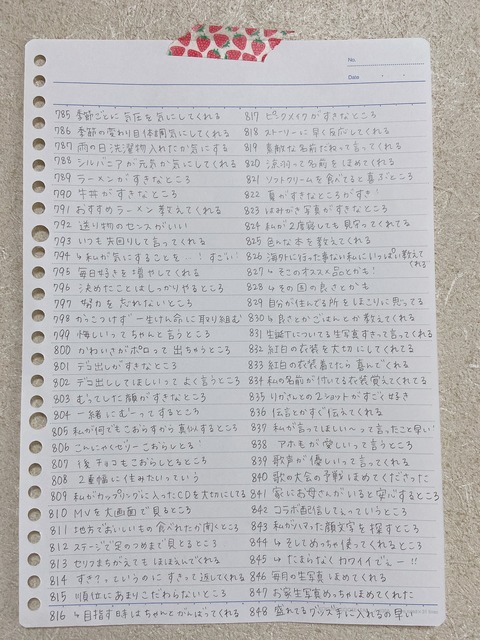 No.
Date
785 季節ごとに 気圧を 気にしてくれる
786 季節の変わり目体調気にしてくれる
787 雨の日洗濯物入れたか気にする
788 シルバニアが元気か気にしてくれる
789 ラーメンがすきなところ
790 牛丼がすきなところ
791 おすすめラーメン教えてくれる
792 送り物のセンスがいい
793 いつも先回りして言ってくれる
794 ↳私が気にすることを‥! すごい
795 毎日好きを増やしてくれる
796 決めたことはしっかりやるところ
797 努力を忘れないところ
798 かっこつけず一生けん命に取り組む
799 悔しいってちゃんと言うところ
800 かわいさがポロって出ちゃうところ
801 デコ出しがすきなところ
802 デコ出ししてほしいってよく言うところ
803 むってした顔がすきなところ
804 一緒にむーってするところ
805 私が何でもこおらすから真似するところ
806 こんにゃくゼリーこおらしとる!
807 後チョコもこおらしとるところ
808 2重幅に住みたいっていう
809 私がカップリングに入ったCDを大切にしてる
810 MVを大画面で見るところ
811 地方でおいしいもの食べれたか聞くところ
812 ステージで足のつめまで見とるところ
813 セリフまちがえてもほほえんでくれる
814 すきっ?というのにすきって返してくれる
815 順位にあまりこだわらないところ
816 ↳目指す時はちゃんとがんばってくれる
817 ピンクメイクがすきなところ
818 ストーリーに早く反応してくれる
819 素敵な名前だねって言ってくれる
820 涼羽って名前をほめてくれる
821 ソフトクリームを食べてると喜ぶところ
822 夏がすきなところがすき!
823 はみがき写真がすきなところ
824 私が2度寝しても見守ってくれてる
825 色んな本を教えてくれる
826 海外に行った事ない私にいっぱい教えてくれる
827 ↳そこのオススメ品とかも!
828 ↳その国の良さとかも
829 自分が住んでる所をほこりに思ってる
830 ↳良さとかごはんとか教えてくれる
831 生誕Tについてる生写真すきって言ってくれる
832 紅白の衣装を大切にしてくれる
833 紅白の衣装着てたら喜んでくれる
834 私の名前が付いてる衣装覚えてくれてる
835 りかさんとの2ショットがすごく好き
836 伝言とかすぐ伝えてくれる
837 私が言ってほしい〜って言ったこと早い!
838 アホ毛が愛しいって言うところ
839 歌声が優しいって言ってくれる
840 歌の大会の予戦ほめてくださった
841 家にお母さんがいると安心するところ
842 コラボ配信してんっていうところ
843 私がハマった顔文字を探すところ
844 ↳そしてめっちゃ使ってくれるところ
845 ↳たまらなくカワイイでぇー!!
846 毎月の生写真ほめてくれる
847 お家生写真めっちゃほめてくれる
848 盛れてるグッズ手に入れるの早い